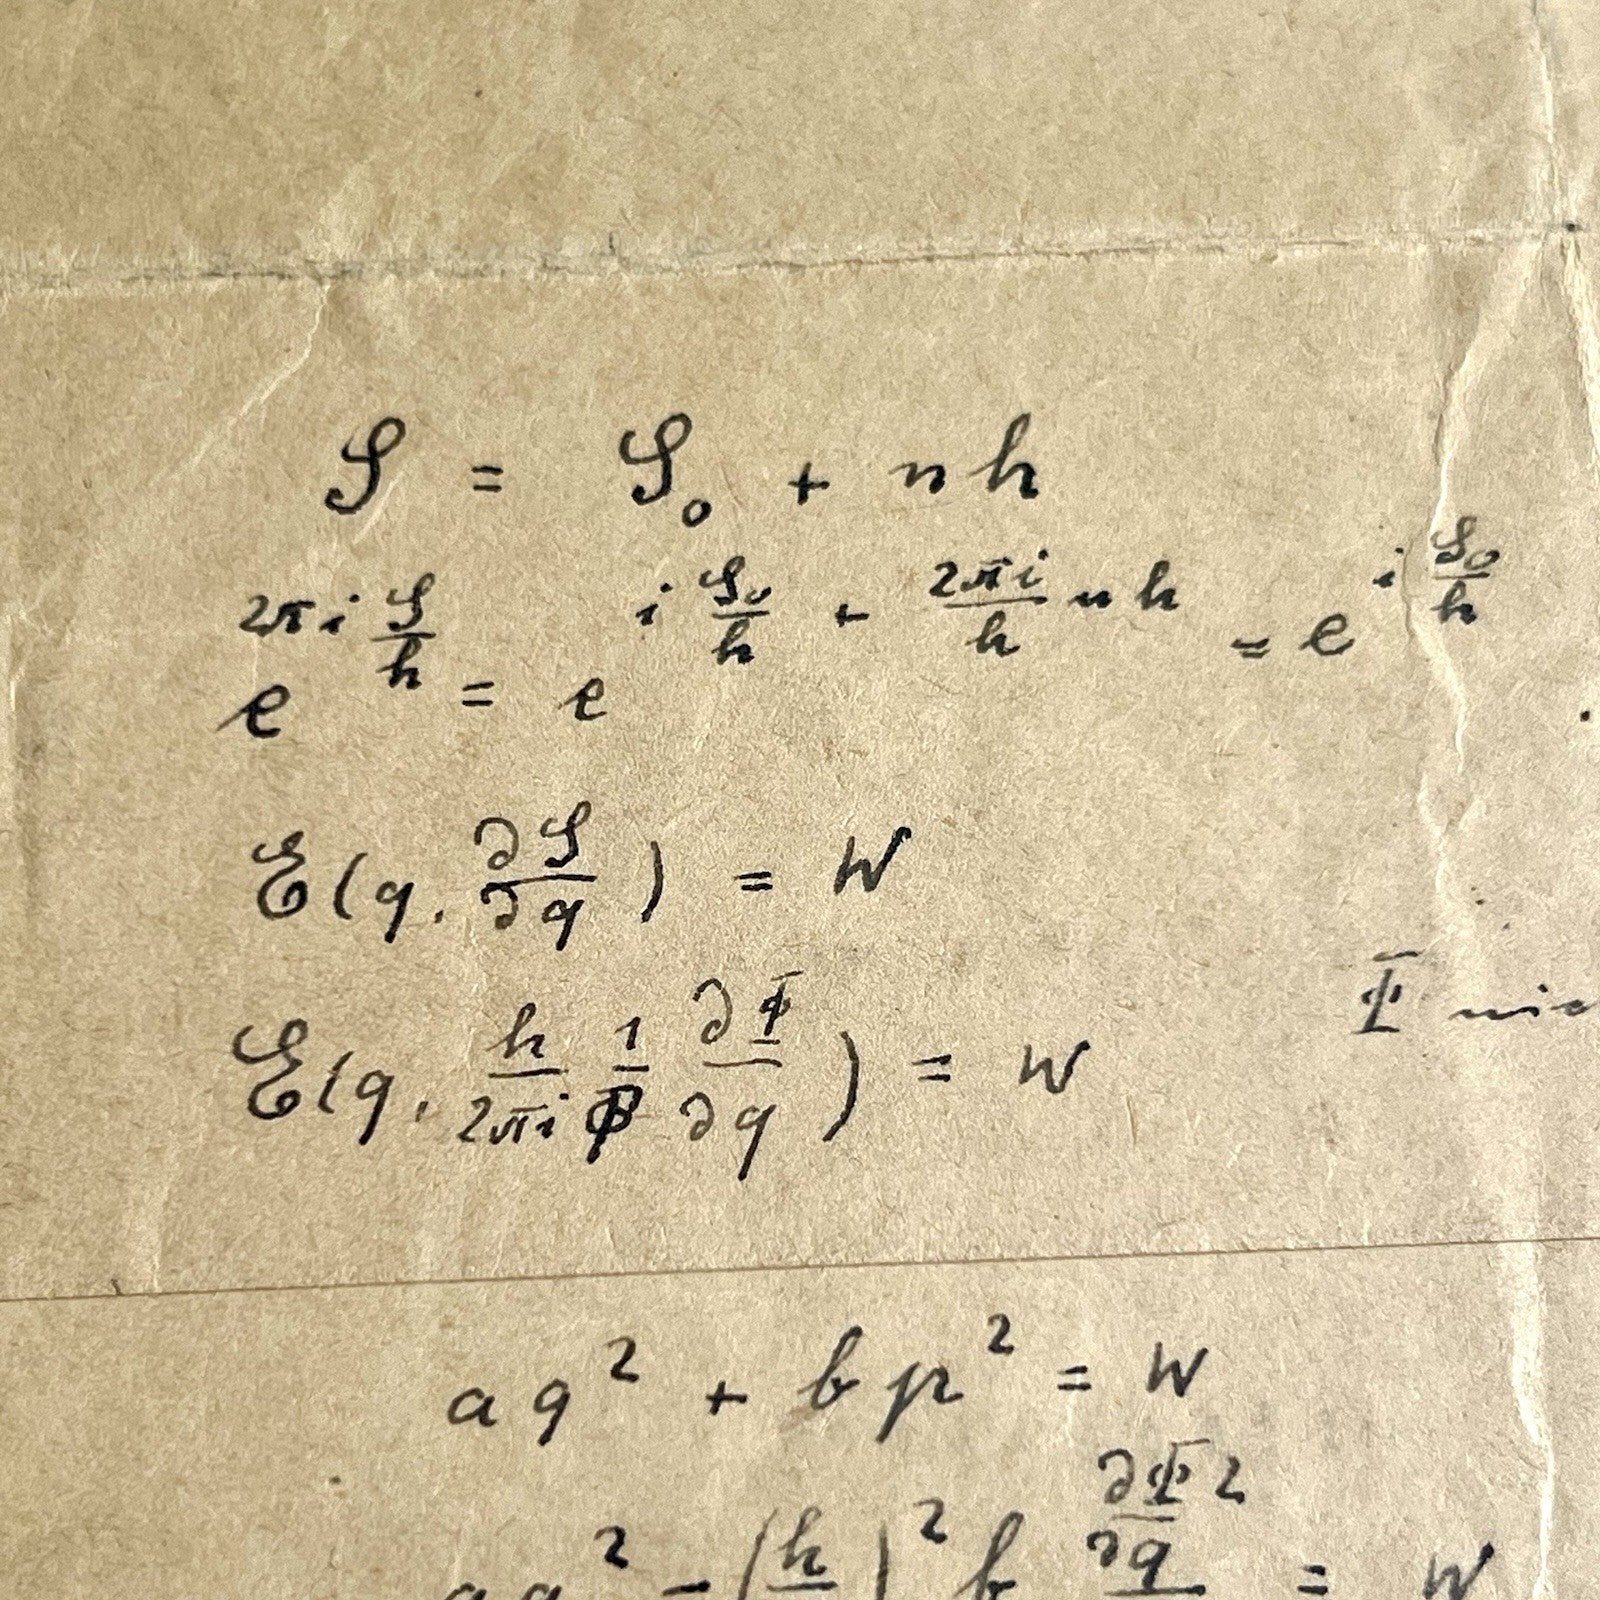 S = S₀ + n h
e^(2πi S/h) = e^(i S₀/h + (2πi/h) n h) = e^(i S₀/h)
E(q, ∂S/∂q) = W
E(q, h/2πi 1/Φ ∂Φ/∂q) = W Φ
a q² + b p² = W
a q² - (h/ )² b ∂Φ²/∂q = W